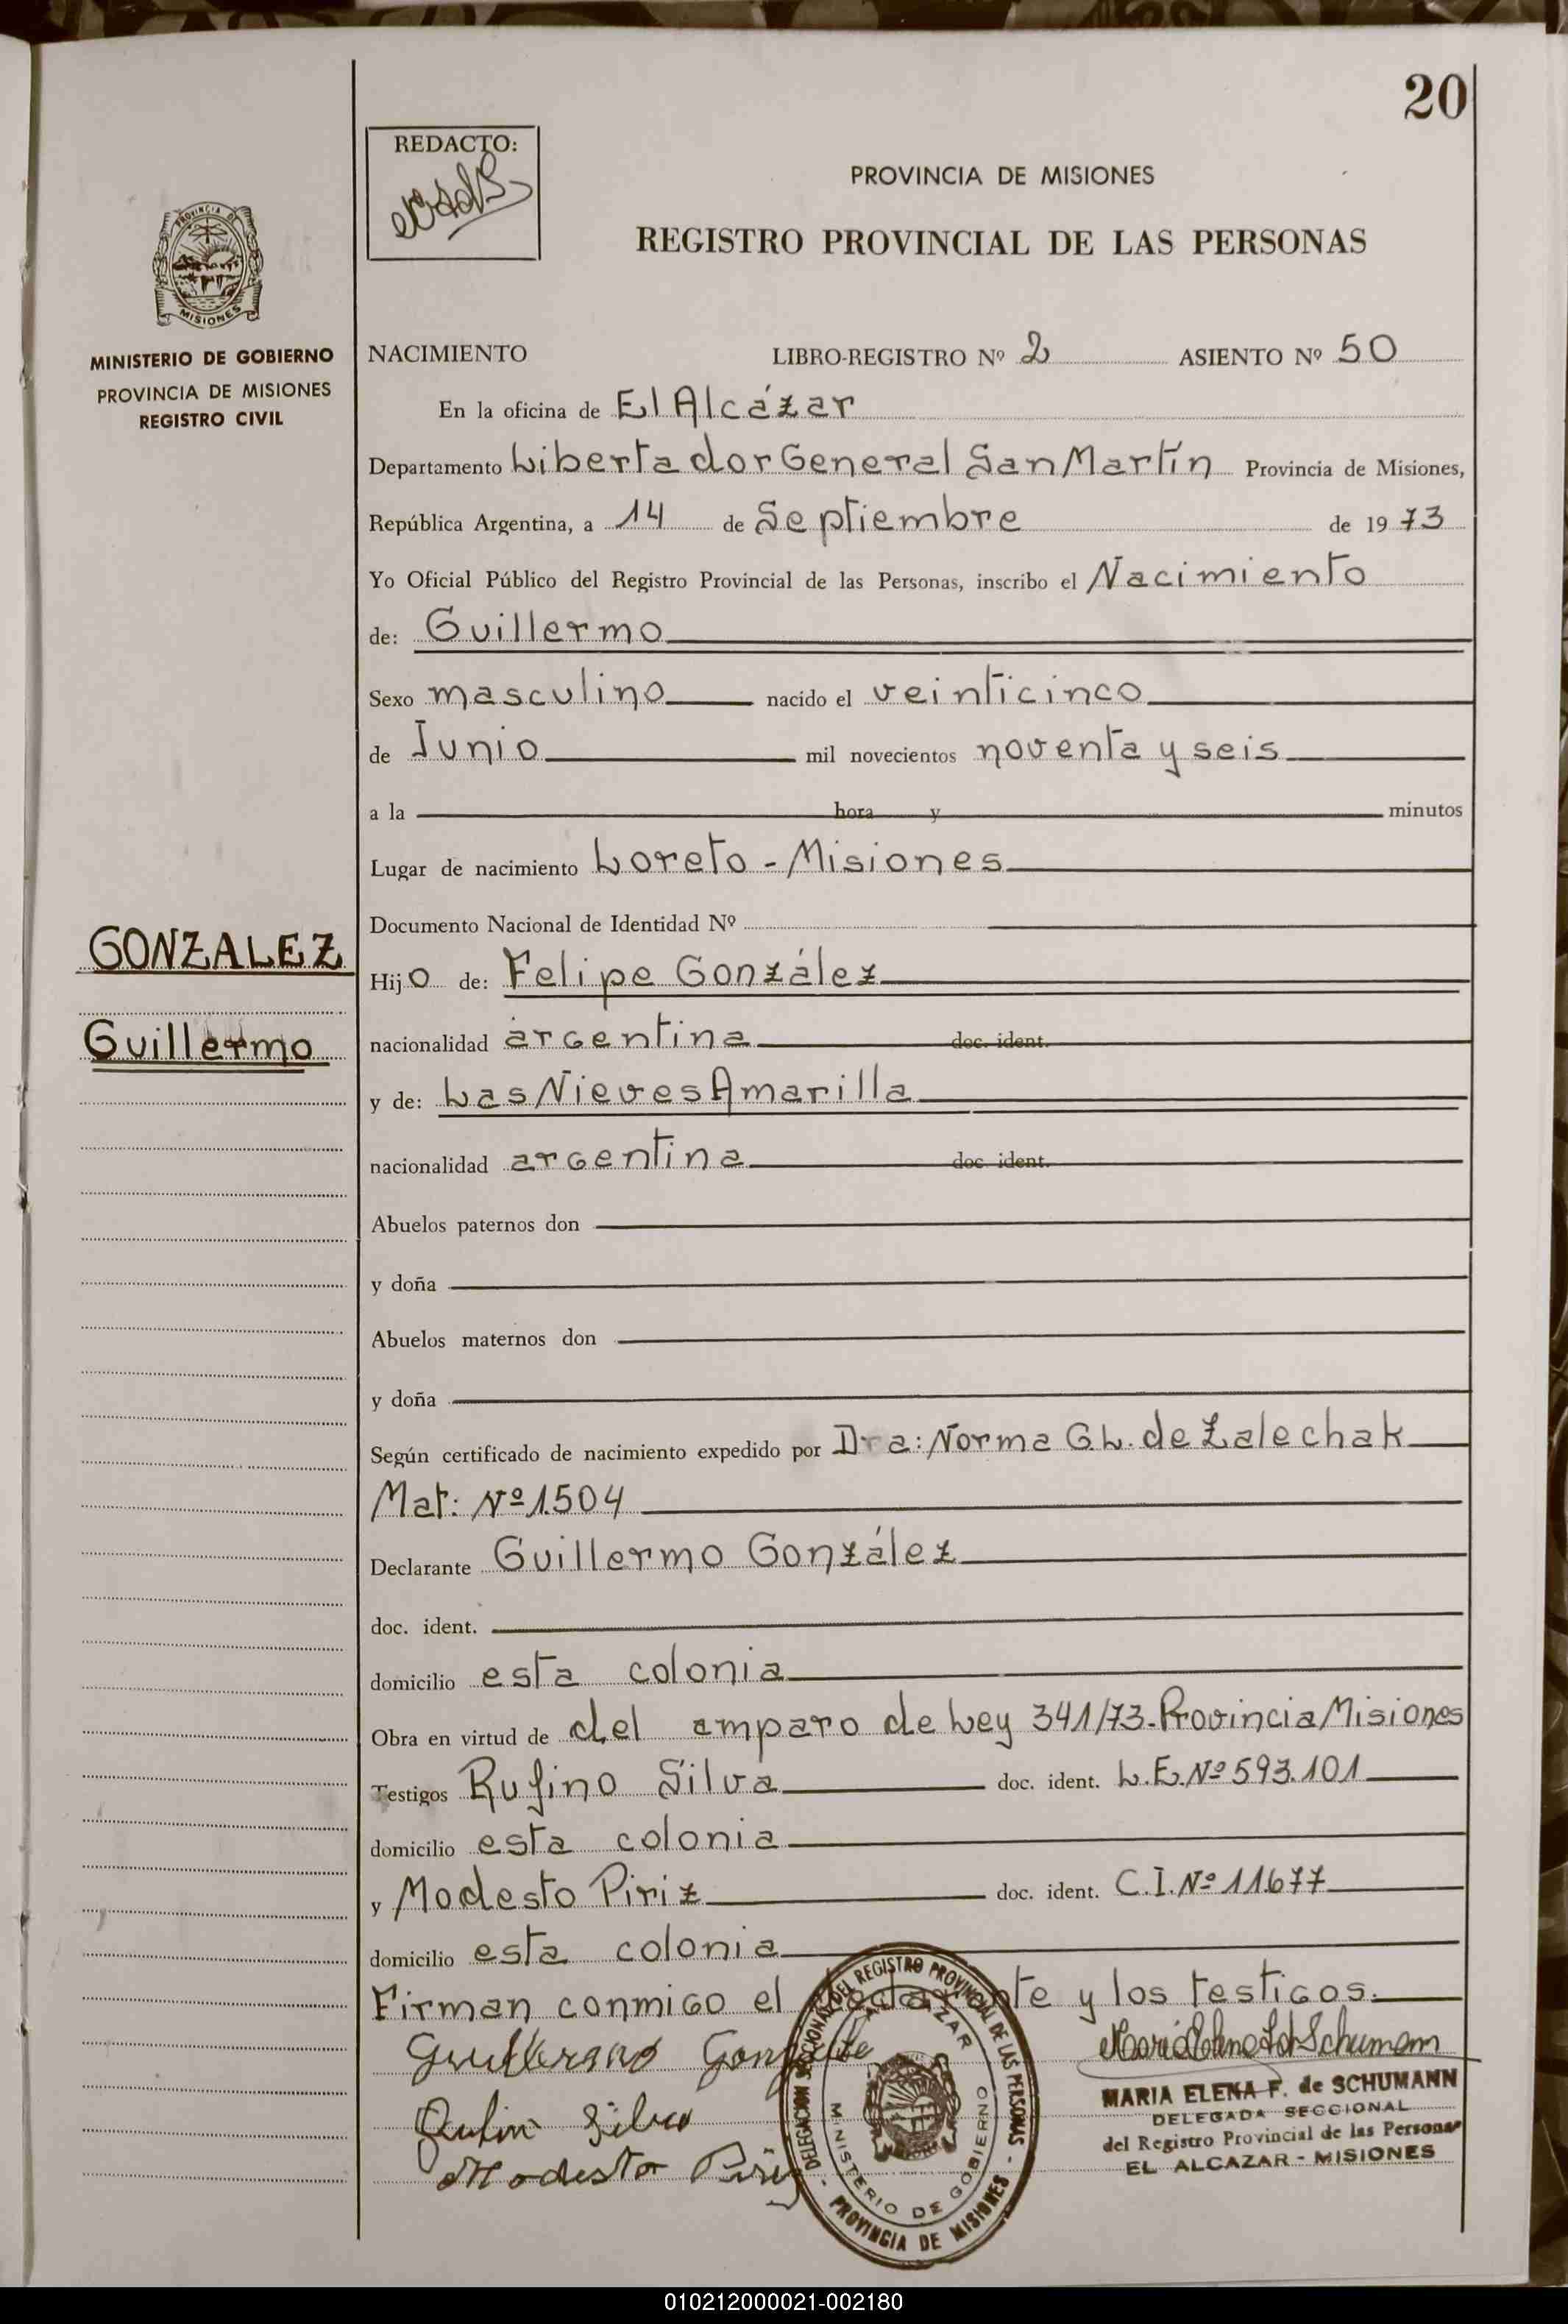 20
REDACTO:
PROVINCIA DE MISIONES
REGISTRO PROVINCIAL DE LAS PERSONAS
PROVINCIA DE
MISIONES
MINISTERIO DE GOBIERNO
PROVINCIA DE MISIONES
REGISTRO CIVIL
NACIMIENTO LIBRO-REGISTRO Nº 2 ASIENTO Nº 50
En la oficina de El Alcázar
Departamento Libertador General San Martín Provincia de Misiones,
República Argentina, a 14 de Septiembre de 1973
Yo Oficial Público del Registro Provincial de las Personas, inscribo el Nacimiento
de: Guillermo
Sexo masculino nacido el veinticinco
de Junio mil novecientos noventa y seis
a la hora y minutos
Lugar de nacimiento Loreto - Misiones
Documento Nacional de Identidad Nº
GONZALEZ
Hijo de: Felipe González
Guillermo
nacionalidad argentina doc. ident.
y de: Las Nieves Amarilla
nacionalidad argentina doc. ident.
Abuelos paternos don
y doña
Abuelos maternos don
y doña
Según certificado de nacimiento expedido por Dra: Norma G.L. de Zalechak
Mat: Nº 1504
Declarante Guillermo González
doc. ident.
domicilio esta colonia
Obra en virtud de del amparo de Ley 341/73-Provincia Misiones
Testigos Rufino Silva doc. ident. L.E. Nº 593.101
domicilio esta colonia
y Modesto Piriz doc. ident. C.I. Nº 11.677
domicilio esta colonia
Firman conmigo el declarante y los testigos.
Guillermo
Silva
Modesto Piriz
DELEGACION SECCIONAL DEL REGISTRO PROVINCIAL DE LAS PERSONAS
MINISTERIO DE GOBIERNO
- PROVINCIA DE MISIONES -
MARIA ELENA F. de SCHUMANN
DELEGADA SECCIONAL
del Registro Provincial de las Personas
EL ALCAZAR - MISIONES
010212000021-002180